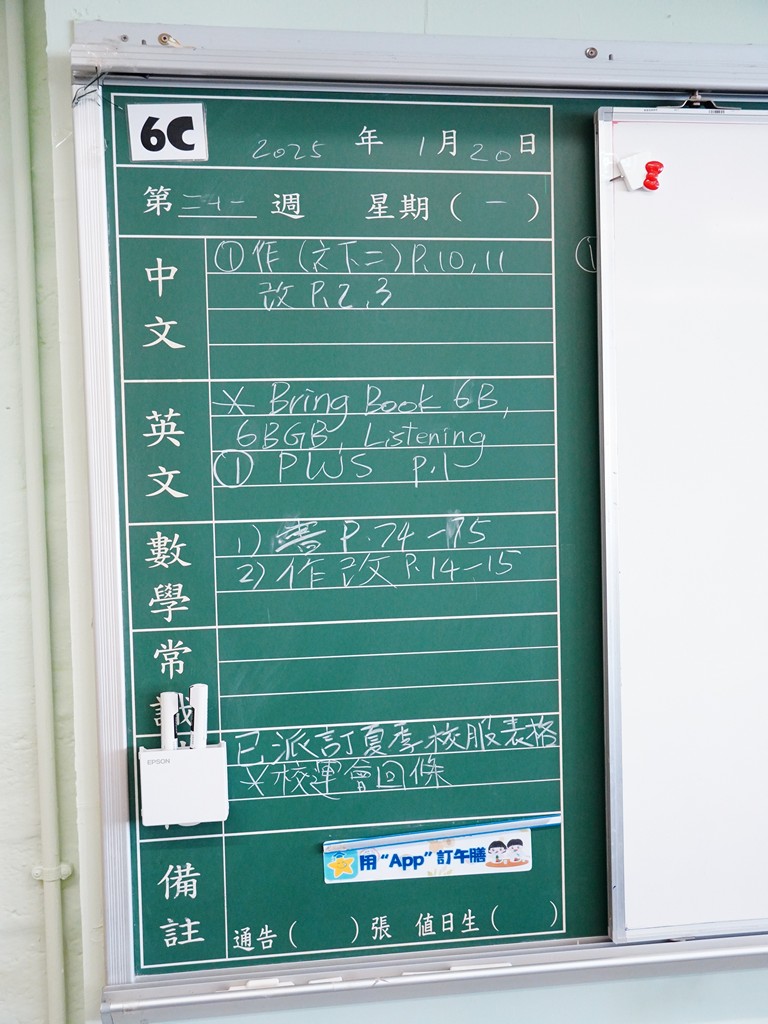 6C
2025 年 1月20日
第 週 星期(一)
中文
① 作 (文下二) P.10,11
改 P.2,3
英文
* Bring Book 6B,
6BGB, Listening
① PWS p.1
數學
1) 書 P.74-75
2) 作 改 P.14-15
常
已派訂夏季校服表格
*校運會回條
EPSON
用“App”訂午膳
備註
通告( )張 值日生( )
①